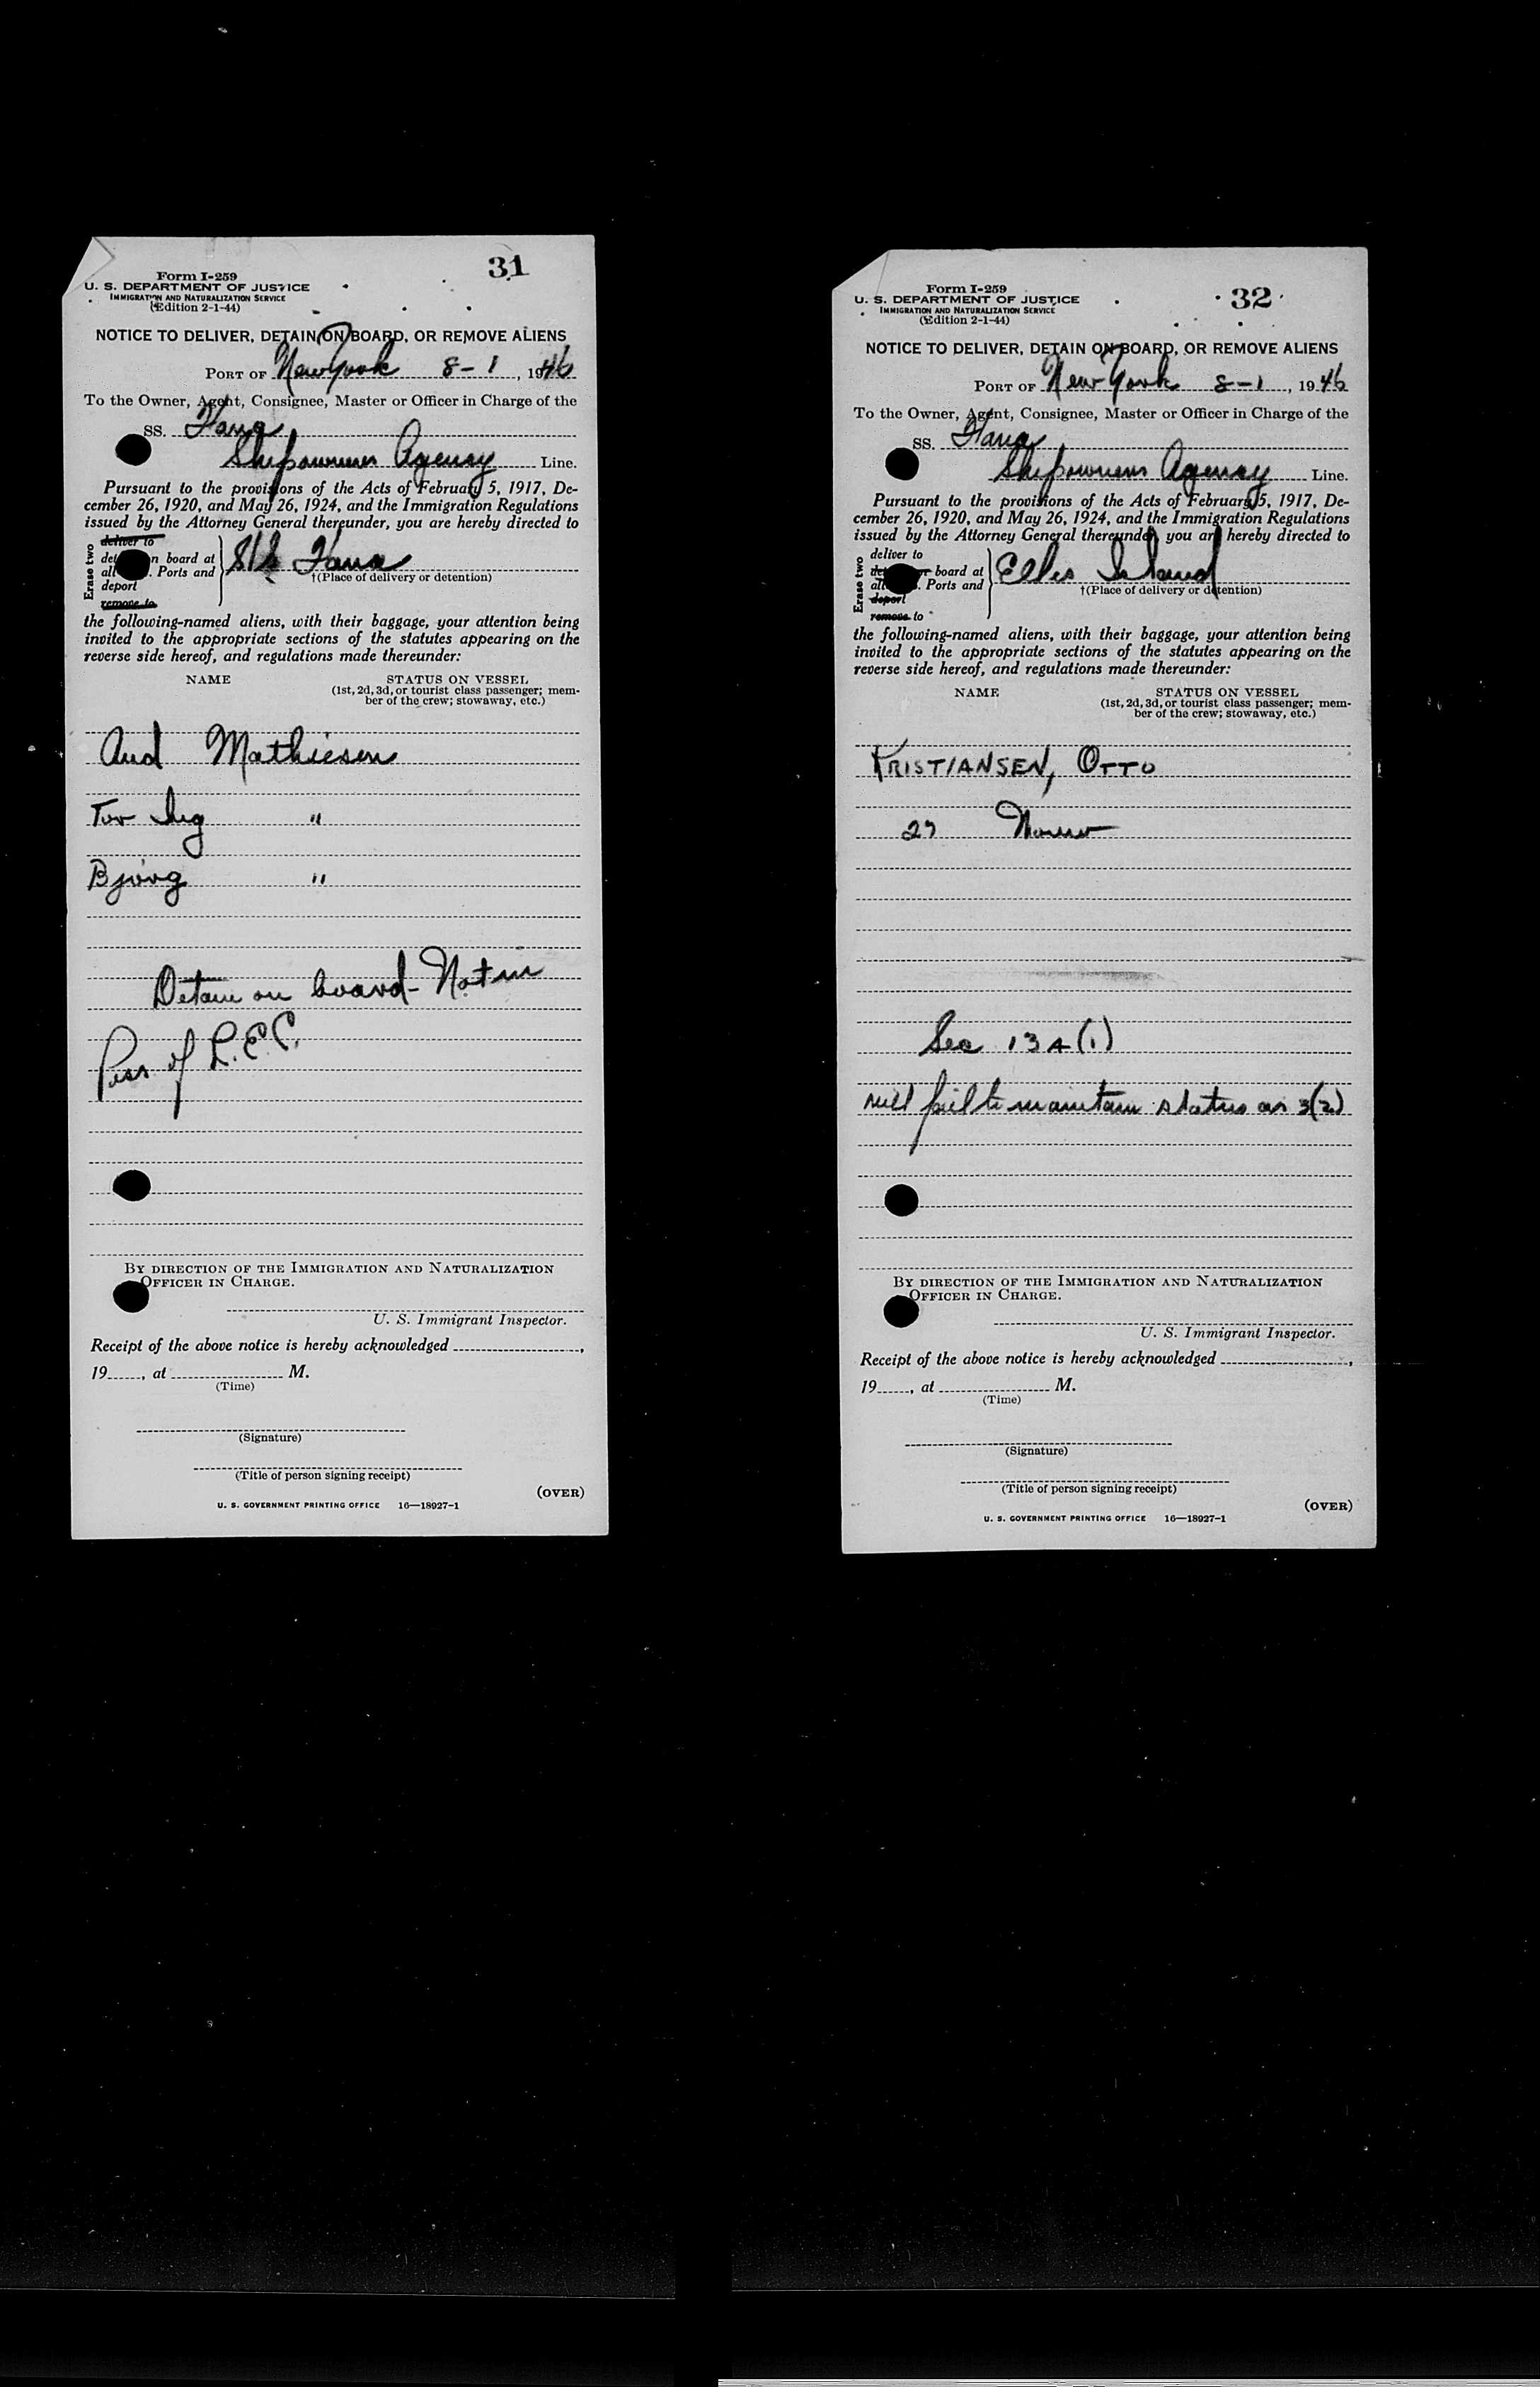 31
Form I-259
U. S. DEPARTMENT OF JUSTICE
IMMIGRATION AND NATURALIZATION SERVICE
(Edition 2-1-44)
NOTICE TO DELIVER, DETAIN ON BOARD, OR REMOVE ALIENS
PORT OF New York 8-1, 1946
To the Owner, Agent, Consignee, Master or Officer in Charge of the
SS. Fana
Shipowners Agency Line.
Pursuant to the provisions of the Acts of February 5, 1917, De-
cember 26, 1920, and May 26, 1924, and the Immigration Regulations
issued by the Attorney General thereunder, you are hereby directed to
Erase two
deliver to
n board at
all . Ports and
deport
remove to
S/S Fana
†(Place of delivery or detention)
the following-named aliens, with their baggage, your attention being
invited to the appropriate sections of the statutes appearing on the
reverse side hereof, and regulations made thereunder:
NAME STATUS ON VESSEL
(1st, 2d, 3d, or tourist class passenger; mem-
ber of the crew; stowaway, etc.)
Aud Mathiesen
Tor Ing "
Björg "
Detain on board - Not in
Poss of L.E.C.
BY DIRECTION OF THE IMMIGRATION AND NATURALIZATION
OFFICER IN CHARGE.
U. S. Immigrant Inspector.
Receipt of the above notice is hereby acknowledged ,
19 , at M.
(Time)
(Signature)
(Title of person signing receipt)
(OVER)
U. S. GOVERNMENT PRINTING OFFICE 16—18927-1
32
Form I-259
U. S. DEPARTMENT OF JUSTICE
IMMIGRATION AND NATURALIZATION SERVICE
(Edition 2-1-44)
NOTICE TO DELIVER, DETAIN ON BOARD, OR REMOVE ALIENS
PORT OF New York 8-1, 1946
To the Owner, Agent, Consignee, Master or Officer in Charge of the
SS. Fana
Shipowners Agency Line.
Pursuant to the provisions of the Acts of February 5, 1917, De-
cember 26, 1920, and May 26, 1924, and the Immigration Regulations
issued by the Attorney General thereunder, you are hereby directed to
Erase two
deliver to
board at
all . Ports and
deport
remove to
Ellis Island
†(Place of delivery or detention)
the following-named aliens, with their baggage, your attention being
invited to the appropriate sections of the statutes appearing on the
reverse side hereof, and regulations made thereunder:
NAME STATUS ON VESSEL
(1st, 2d, 3d, or tourist class passenger; mem-
ber of the crew; stowaway, etc.)
KRISTIANSEN, OTTO
27
Sec 13A(1)
will fail to maintain status as 3(2)
BY DIRECTION OF THE IMMIGRATION AND NATURALIZATION
OFFICER IN CHARGE.
U. S. Immigrant Inspector.
Receipt of the above notice is hereby acknowledged ,
19 , at M.
(Time)
(Signature)
(Title of person signing receipt)
(OVER)
U. S. GOVERNMENT PRINTING OFFICE 16—18927-1